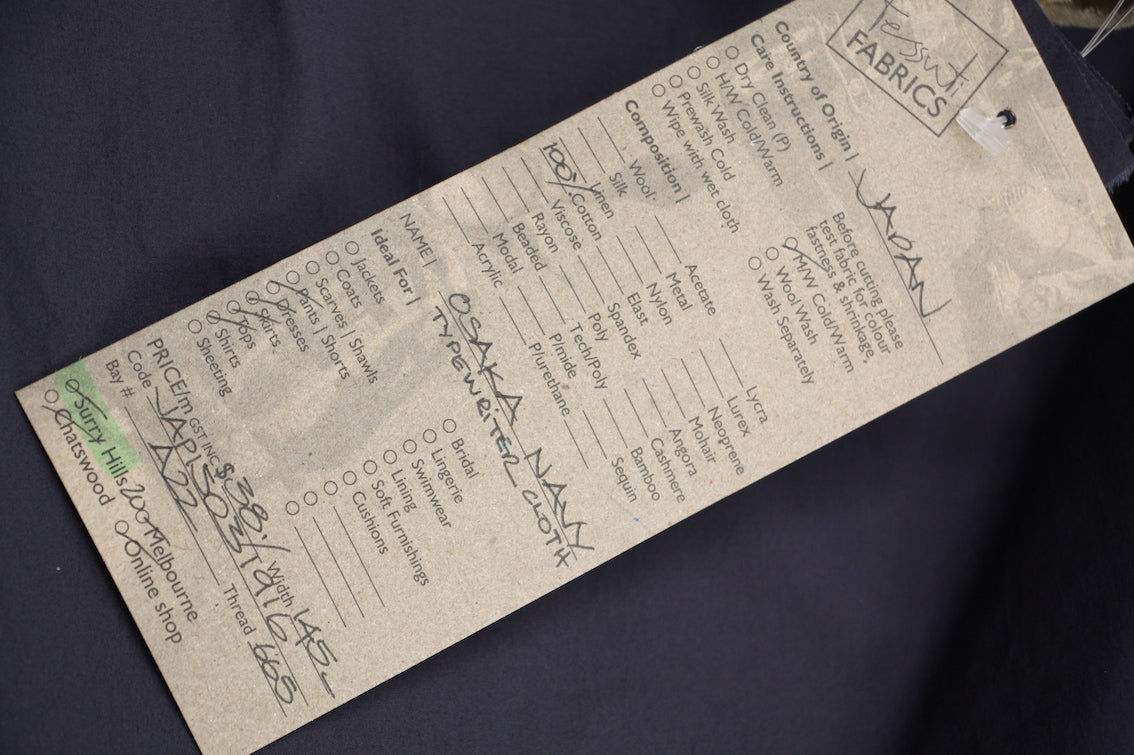 Tessuti
FABRICS
Country of Origin | JAPAN
Care Instructions |
Dry Clean (P)
H/W Cold/Warm
Silk Wash
Prewash Cold
Wipe with wet cloth
Before cutting please
test fabric for colour
fastness & shrinkage.
M/W Cold/Warm
Wool Wash
Wash Separately
Composition |
Wool
Silk
Linen
100% Cotton
Viscose
Rayon
Beaded
Modal
Acrylic
Acetate
Metal
Nylon
Elast
Spandex
Poly
Tech/Poly
P/mide
P/urethane
Lycra
Lurex
Neoprene
Mohair
Angora
Cashmere
Bamboo
Sequin
NAME | OSAKA NAVY
TYPEWRITER CLOTH
Ideal For |
Jackets
Coats
Scarves | Shawls
Pants | Shorts
Dresses
Skirts
Tops
Shirts
Sheeting
Bridal
Lingerie
Swimwear
Lining
Soft Furnishings
Cushions
PRICE/m GST INC $38/ Width 145
Code
Bay # A22 Thread 665
Surry Hills 200 Melbourne
Chatswood Online shop